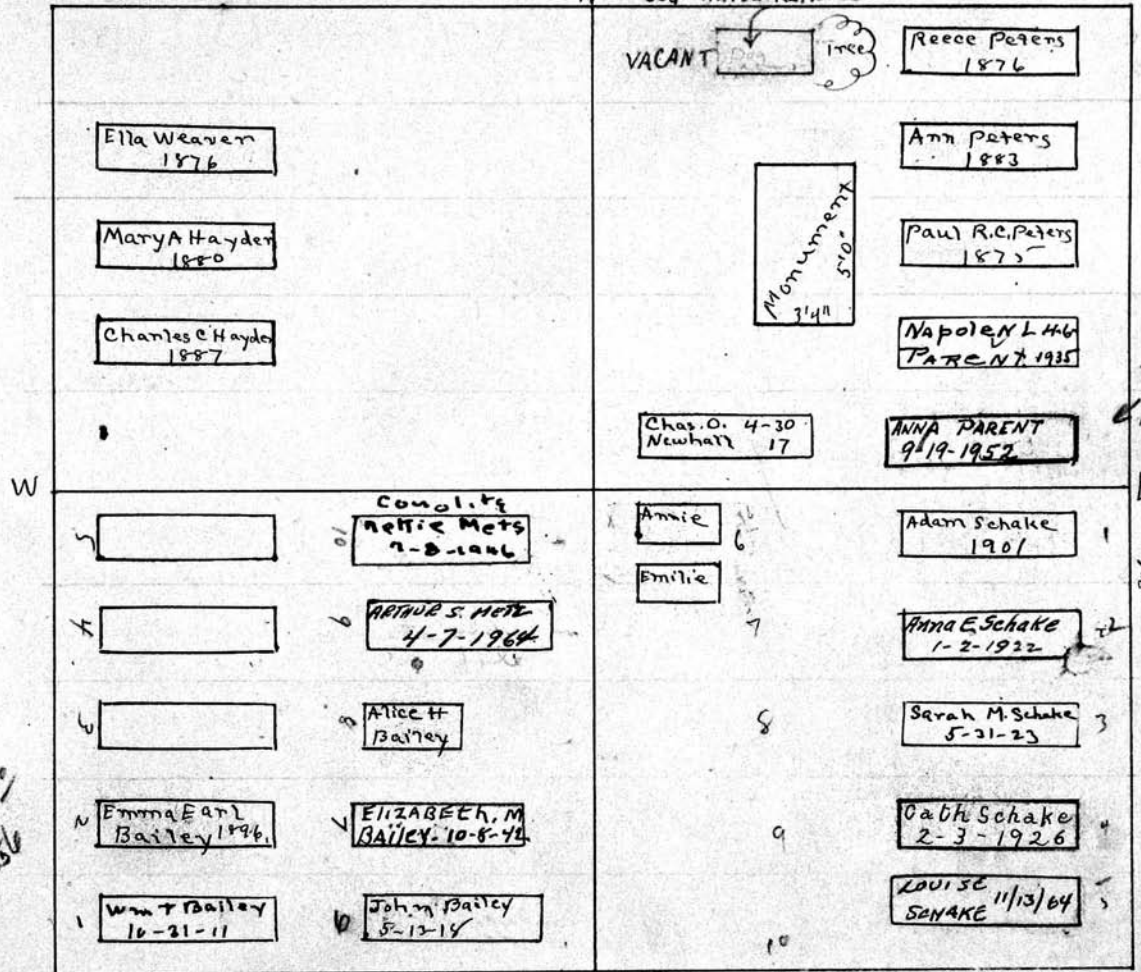 VACANT
Tree
Reece Peters
1876
Ella Weaver
1876
Ann Peters
1883
Monument
5'0"
3'4"
Mary A Hayden
1880
Paul R.C. Peters
1875
Charles C Hayden
1887
Napoleon L H-6
PARENT. 1935
Chas. O. 4-30
Newhall 17
ANNA PARENT
9-19-1952
W
5
10
Nettie Mets
Annie
6
Adam Schake
1901
1
Emilie
4
9
ARTHUR S. METZ
4-7-1964
7
Anna E. Schake
1-2-1922
2
3
8
Alice H
Bailey
8
Sarah M. Schake
5-31-23
3
2
Emma Earl
Bailey 1896.
7
ELIZABETH. M
BAILEY. 10-8-42
9
Cath Schake
2-3-1926
4
1
Wm T Bailey
10-31-11
6
John Bailey
5-13-14
10
LOUISE 11/13/64
SCHAKE
5